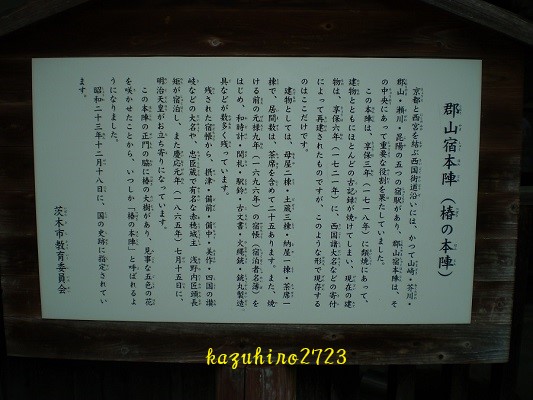 郡山宿本陣（椿の本陣）
京都と西宮を結ぶ西国街道沿いには、かつて山崎・芥川・
郡山・瀬川・昆陽の五つの宿駅があり、郡山宿本陣は、そ
の中央にあって重要な役割を果たしていました。
この本陣は、享保三年（一七一八年）に類焼にあって、
建物とともにほとんどの古記録が焼けてしまい、現在の建
物は、享保六年（一七二一年）に、西国諸大名などの寄付
によって再建されたものですが、このような形で現存する
のはここだけです。
建物としては、母屋二棟・土蔵三棟・納屋一棟・茶席一
棟で、居間数は、茶席を含めて二十五あります。また、焼
ける前の元禄九年（一六九六年）の宿帳（宿泊者名簿）を
はじめ、和時計・関札・駅鈴・古文書・火縄銃・銃丸製造
具などが数多く残っています。
残された宿帳から、摂津・備前・備中・美作・四国の讃
岐などの大名や、忠臣蔵で有名な赤穂城主 浅野内匠頭長
矩が宿泊し、また慶応元年（一八六五年）七月十五日に、
明治天皇がお立ち寄りになっています。
この本陣の正門の脇に椿の大樹があり、見事な五色の花
を咲かせたことから、いつしか「椿の本陣」と呼ばれるよ
うになりました。
昭和二十三年十二月十八日に、国の史跡に指定されてい
ます。
茨木市教育委員会
kazuhiro2723